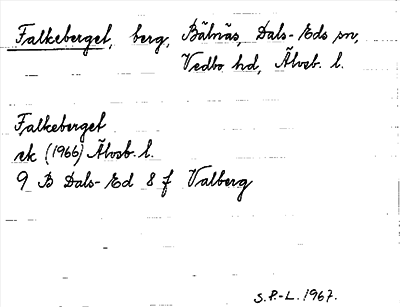 Falkeberget, berg, Bälnäs, Dals-Eds sn,
Vedbo hd, Älvsb. l.
Falkeberget
ek (1966) Älvsb. l.
9 B Dals-Ed 8 f Valberg
S.P.-L. 1967.